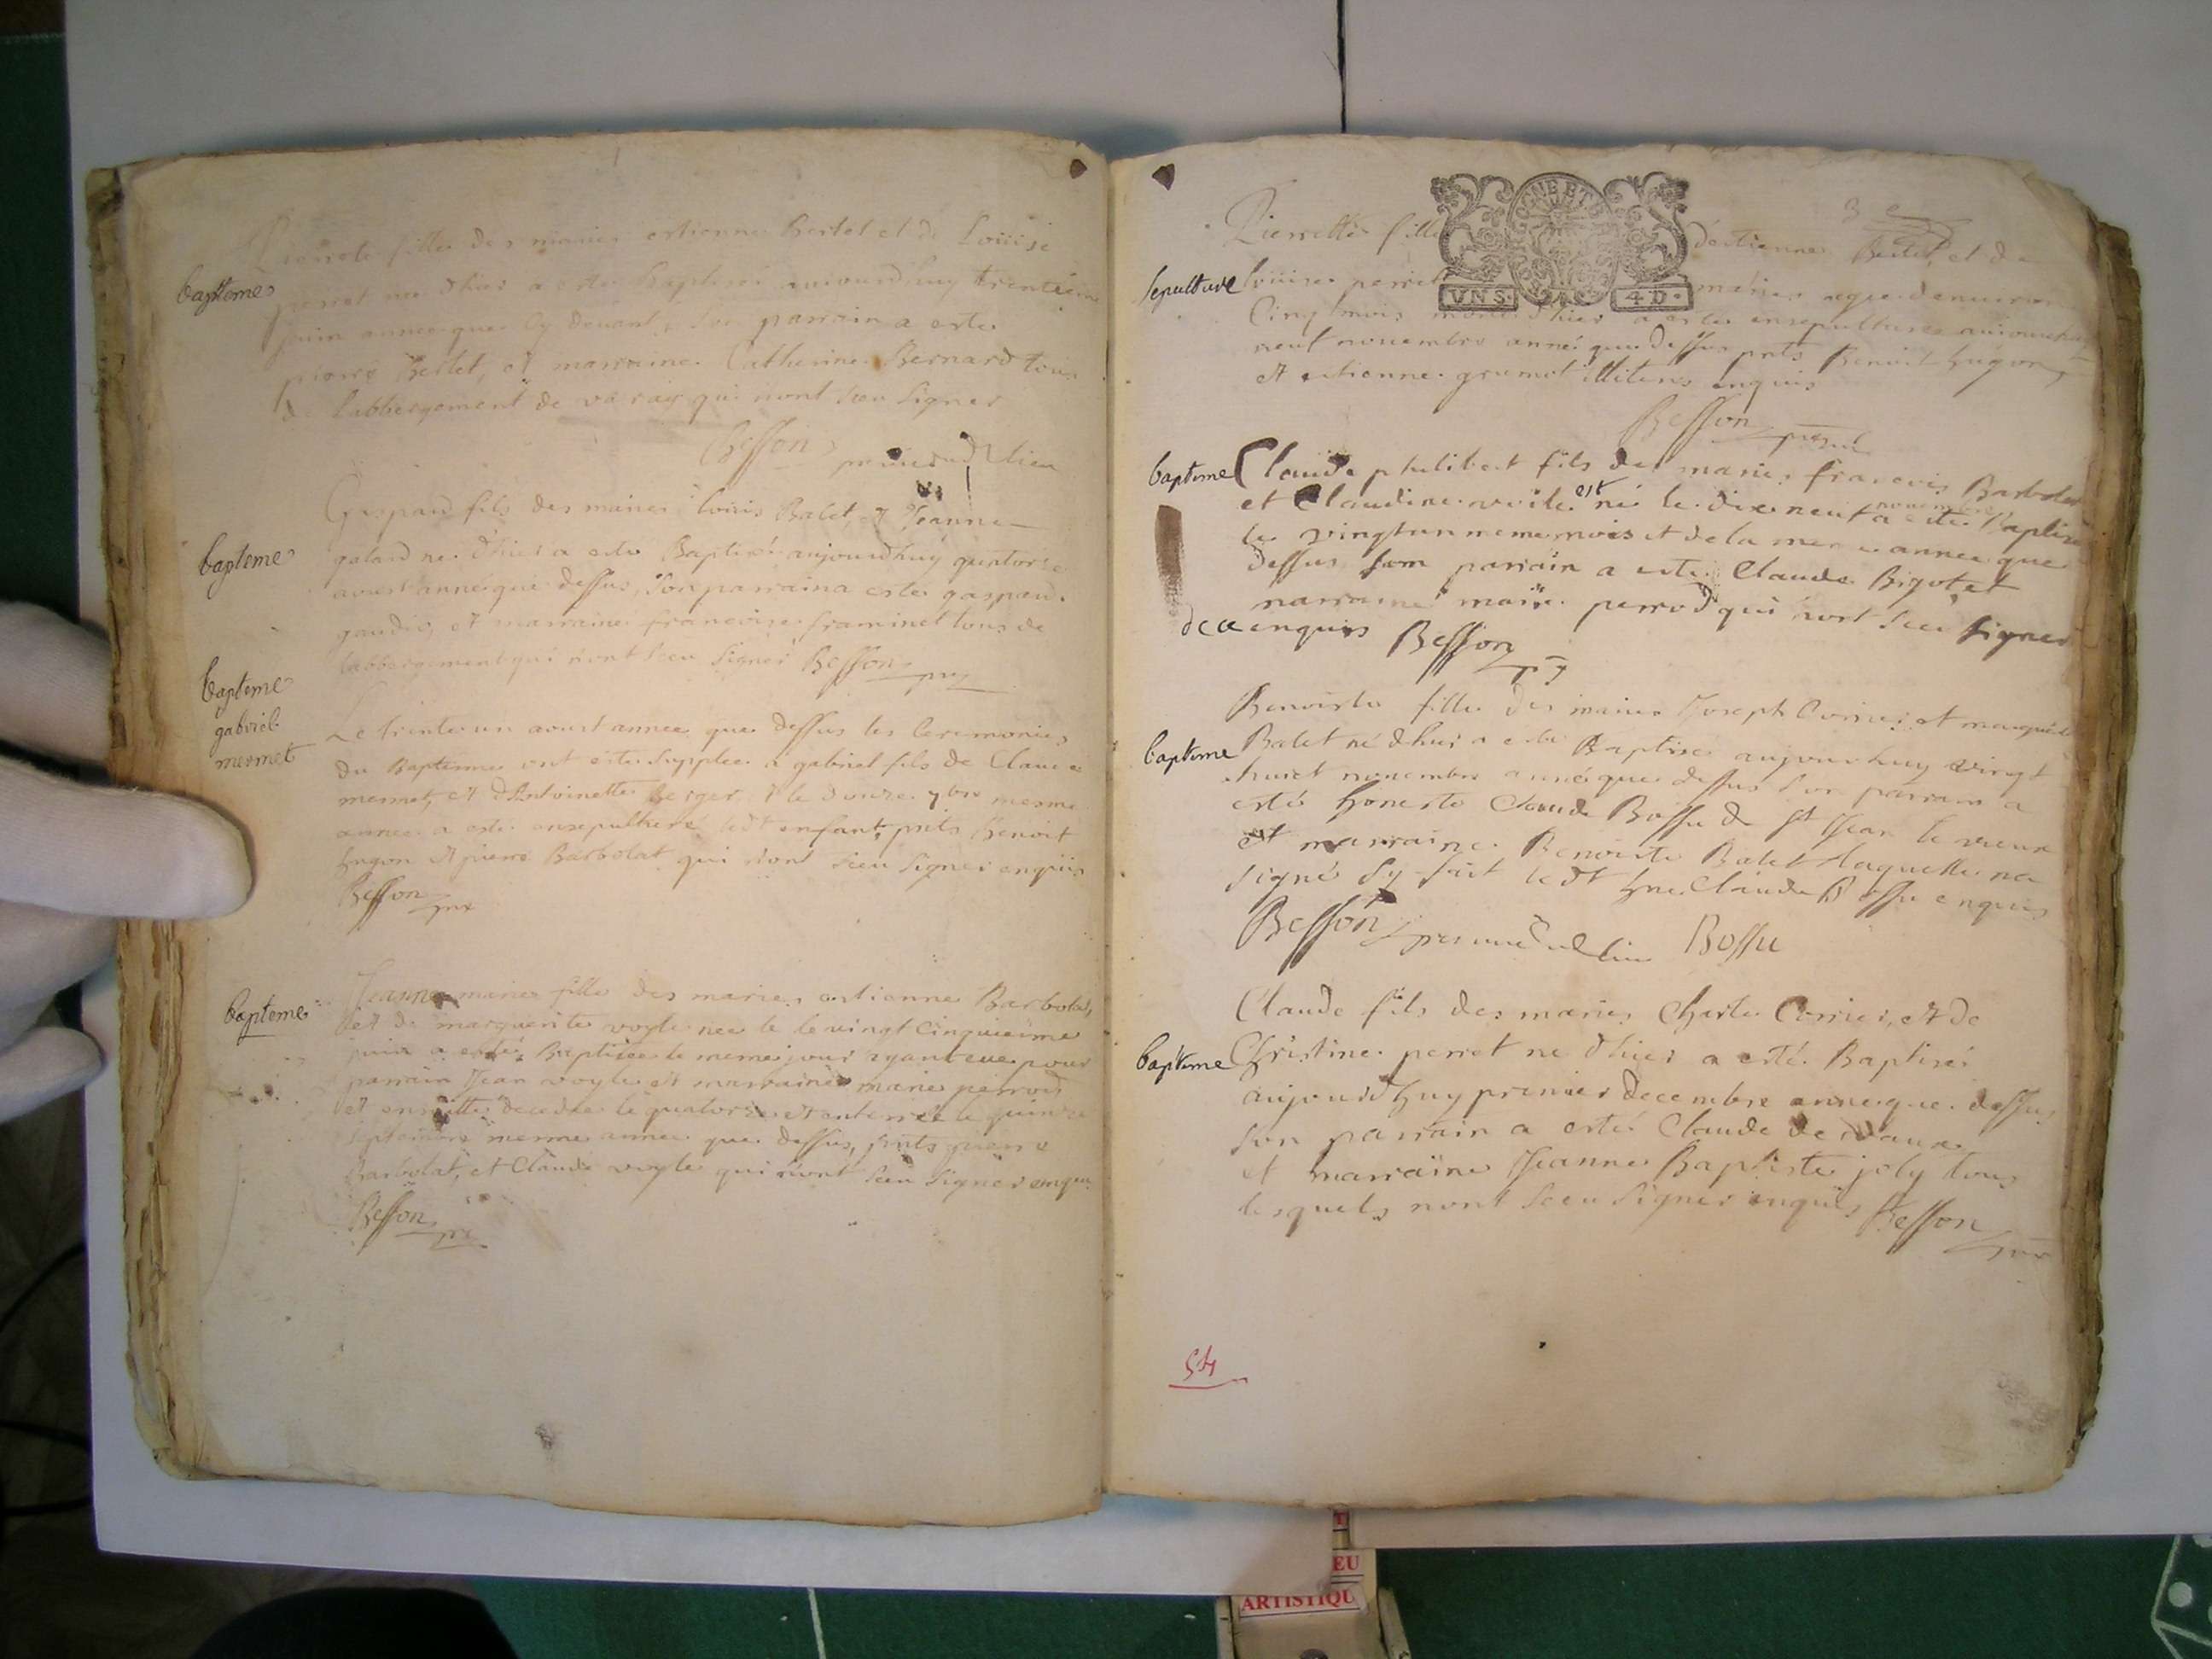 baptemes
fille des maries estienne Bertet et de Loüise
perret nee dhier a este baptisé aujourdhuy trentieme
juin année que Cy devant, son parrain a este
pierre Bertet, et marraine Catherine Bernard tous
de labbergement de varay qui nont sceu signer
Besson
bapteme
Gaspard fils des maries loüis Balet, et Jeanne
galand ne dhier a este Baptisé aujourdhuy quatorse
aoust année que dessus, son parrain a este gaspard
et marraine francoise framinet tous de
labbergement qui n'ont sceu signer Besson
bapteme
gabriel
mermet
Le trente un aoust annee que dessus les Ceremonies
du Baptesme ont este supplee a gabriel fils de Claude
mermet, et dAntoinette Berger et le douze 7bre mesme
annee a este ensepulturé ledt enfant, pnts Benoit
hugon et pierre Barbolat qui n'ont sceu signer enquis
Besson
bapteme
Jeanne marie fille des maries estienne Barbolat,
et de marguerite voyle nee le le vingt Cinquieme
juin a esté Baptisee le meme jour ayant eue pour
parrain Jean voyle et marraine marie perrod
et ensuitte decedee le quatorse et enterrée le quinze
septembre mesme annee que dessus, pnts pierre
Barbolat, et Claude voyle qui n'ont sceu signer enquis
Besson
3e
Pierrette fille d'estienne Bertet, et de
VNS. 4.D.
sepulture
loüise perret maries agee denviron
Cinq mois morte dhier a este ensepulturee aujourdhuy
neuf novembre année que dessus pnts Benoit hugon,
et estienne grumet illiterés enquis
Besson
bapteme
Claude philibert fils des maries francois Barbolat
et Claudine voile est né le dix neuf novembre a este Baptisé
le vingt un meme mois et de la meme annee que
dessus son parrain a este Claude Bigot, et
marraine marie perrod qui n'ont sceu signer
de ce enquis Besson
bapteme
Benoiste fille des maries Joseph Corrier et marguerite
Balet né dhier a este Baptise aujourdhuy vingt
huict novembre année que dessus son parrain a
esté honeste Claude Bossu de st Jean le vieux
et marraine Benoiste Balet laquelle na
signé sy fait ledt hne Claude Bossu enquis
Besson Bossu
bapteme
Claude fils des maries Charle Corrier, et de
Christine perret ne dhier a esté Baptisé
aujourdhuy premier decembre annee que dessus
son parrain a esté Claude de vaux
et marraine Jeanne Baptiste joly tous
lesquels nont sceu signer enquis Besson
54
EU
ARTISTIQU